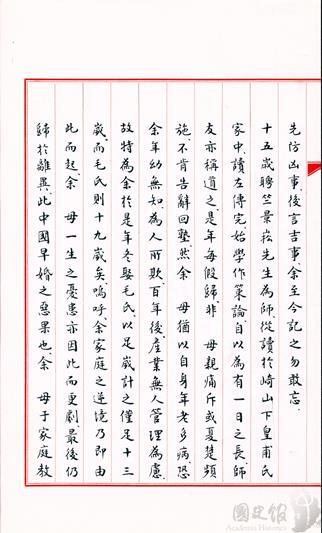 先防凶事、後言吉事、余至今記之勿敢忘。
十五歲聘竺景崧先生為師、從讀於崎山下皇甫氏
家中、讀左傳完、始學作策論、自以為有一日之長、師
友亦稱道之、是年每假歸、非 母親痛斥或夏楚頻
施、不肯告辭回塾、然余 母猶以自身年老多病、恐
余年幼無知、為人所欺、百年後、產業無人管理為慮、
故特為余於是年冬娶毛氏、以足歲計之、僅足十三
歲、而毛氏則十九歲矣、嗚呼、余家庭之逆境、乃即由
此而起、余 母一生之憂患、亦因此而更劇、最後仍
歸於離異、此中國早婚之惡果也、余 母于家庭教
國史館
Academia Historica